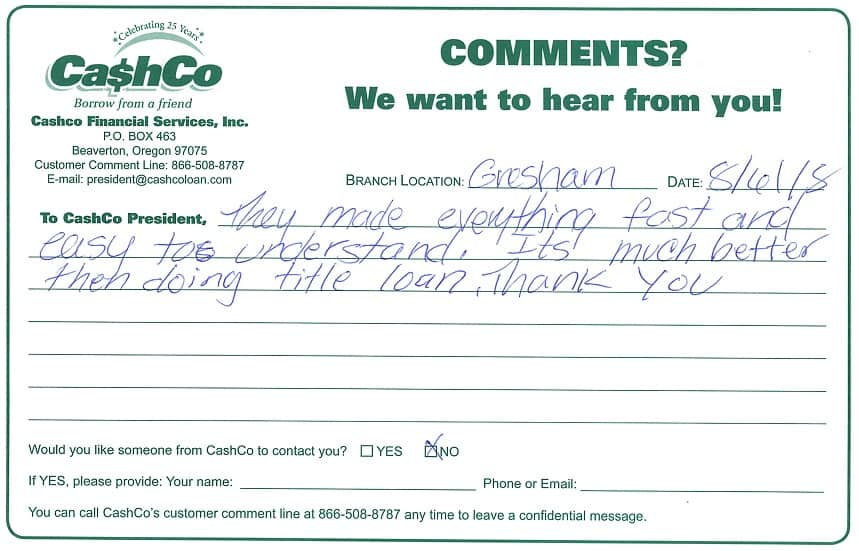 Celebrating 25 Years
Ca$hCo
Borrow from a friend
Cashco Financial Services, Inc.
P.O. BOX 463
Beaverton, Oregon 97075
Customer Comment Line: 866-508-8787
E-mail: president@cashcoloan.com
COMMENTS?
We want to hear from you!
BRANCH LOCATION: Gresham DATE: 8/6/18
To CashCo President, They made everything fast and
easy to understand. Its much better
then doing title loan. Thank you
Would you like someone from CashCo to contact you? YES NO
If YES, please provide: Your name: Phone or Email:
You can call CashCo's customer comment line at 866-508-8787 any time to leave a confidential message.